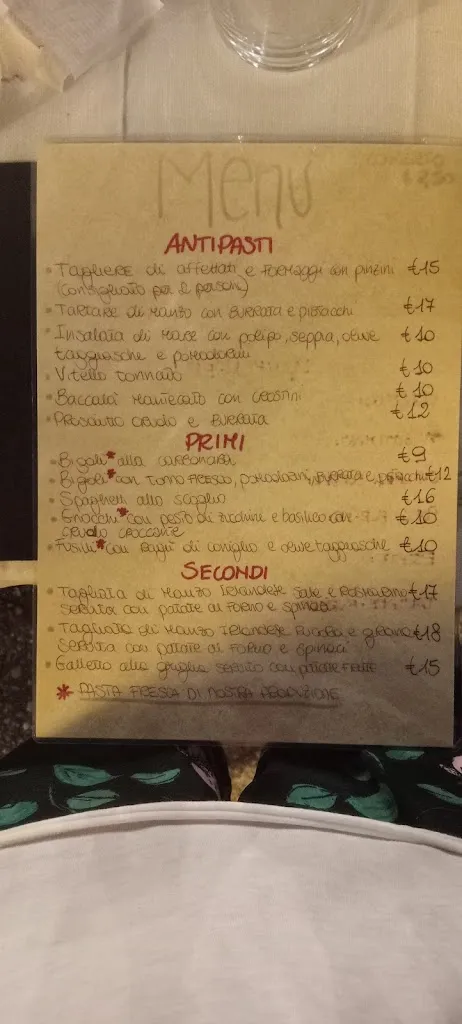 Menu
COPERTO
€ 2,50
ANTIPASTI
• TAGLIERE di affettati e FORMAGGI con pinzini €15
(consigliato per 2 persone)
• TARTARE di MANZO con BURRATA e pistacchi €17
• INSALATA di MARE con polipo, seppia, olive €10
taggiasche e pomodorini
• Vitello tonnato €10
• Baccalà Mantecato con crostini €10
• PROSCIUTTO CRUDO e BURRATA €12
PRIMI
• Bigoli* alla carbonara €9
• Bigoli* con TONNO FRESCO, pomodorini, BURRATA e pistacchi €12
• Spaghetti allo scoglio €16
• Gnocchi* con pesto di zucchine e basilico con €10
crudo croccante
• Fusilli* con Ragù di coniglio e olive taggiasche €10
SECONDI
• TAGLIATA di MANZO IRLANDESE Sale e ROSMARINO €17
SERVITA con patate al FORNO e spinaci
• TAGLIATA di MANZO IRLANDESE RUCOLA e GRANA €18
SERVITA con patate al FORNO e spinaci
• Galletto alla griglia servito con patate FRITTE €15
* PASTA FRESCA DI NOSTRA PRODUZIONE